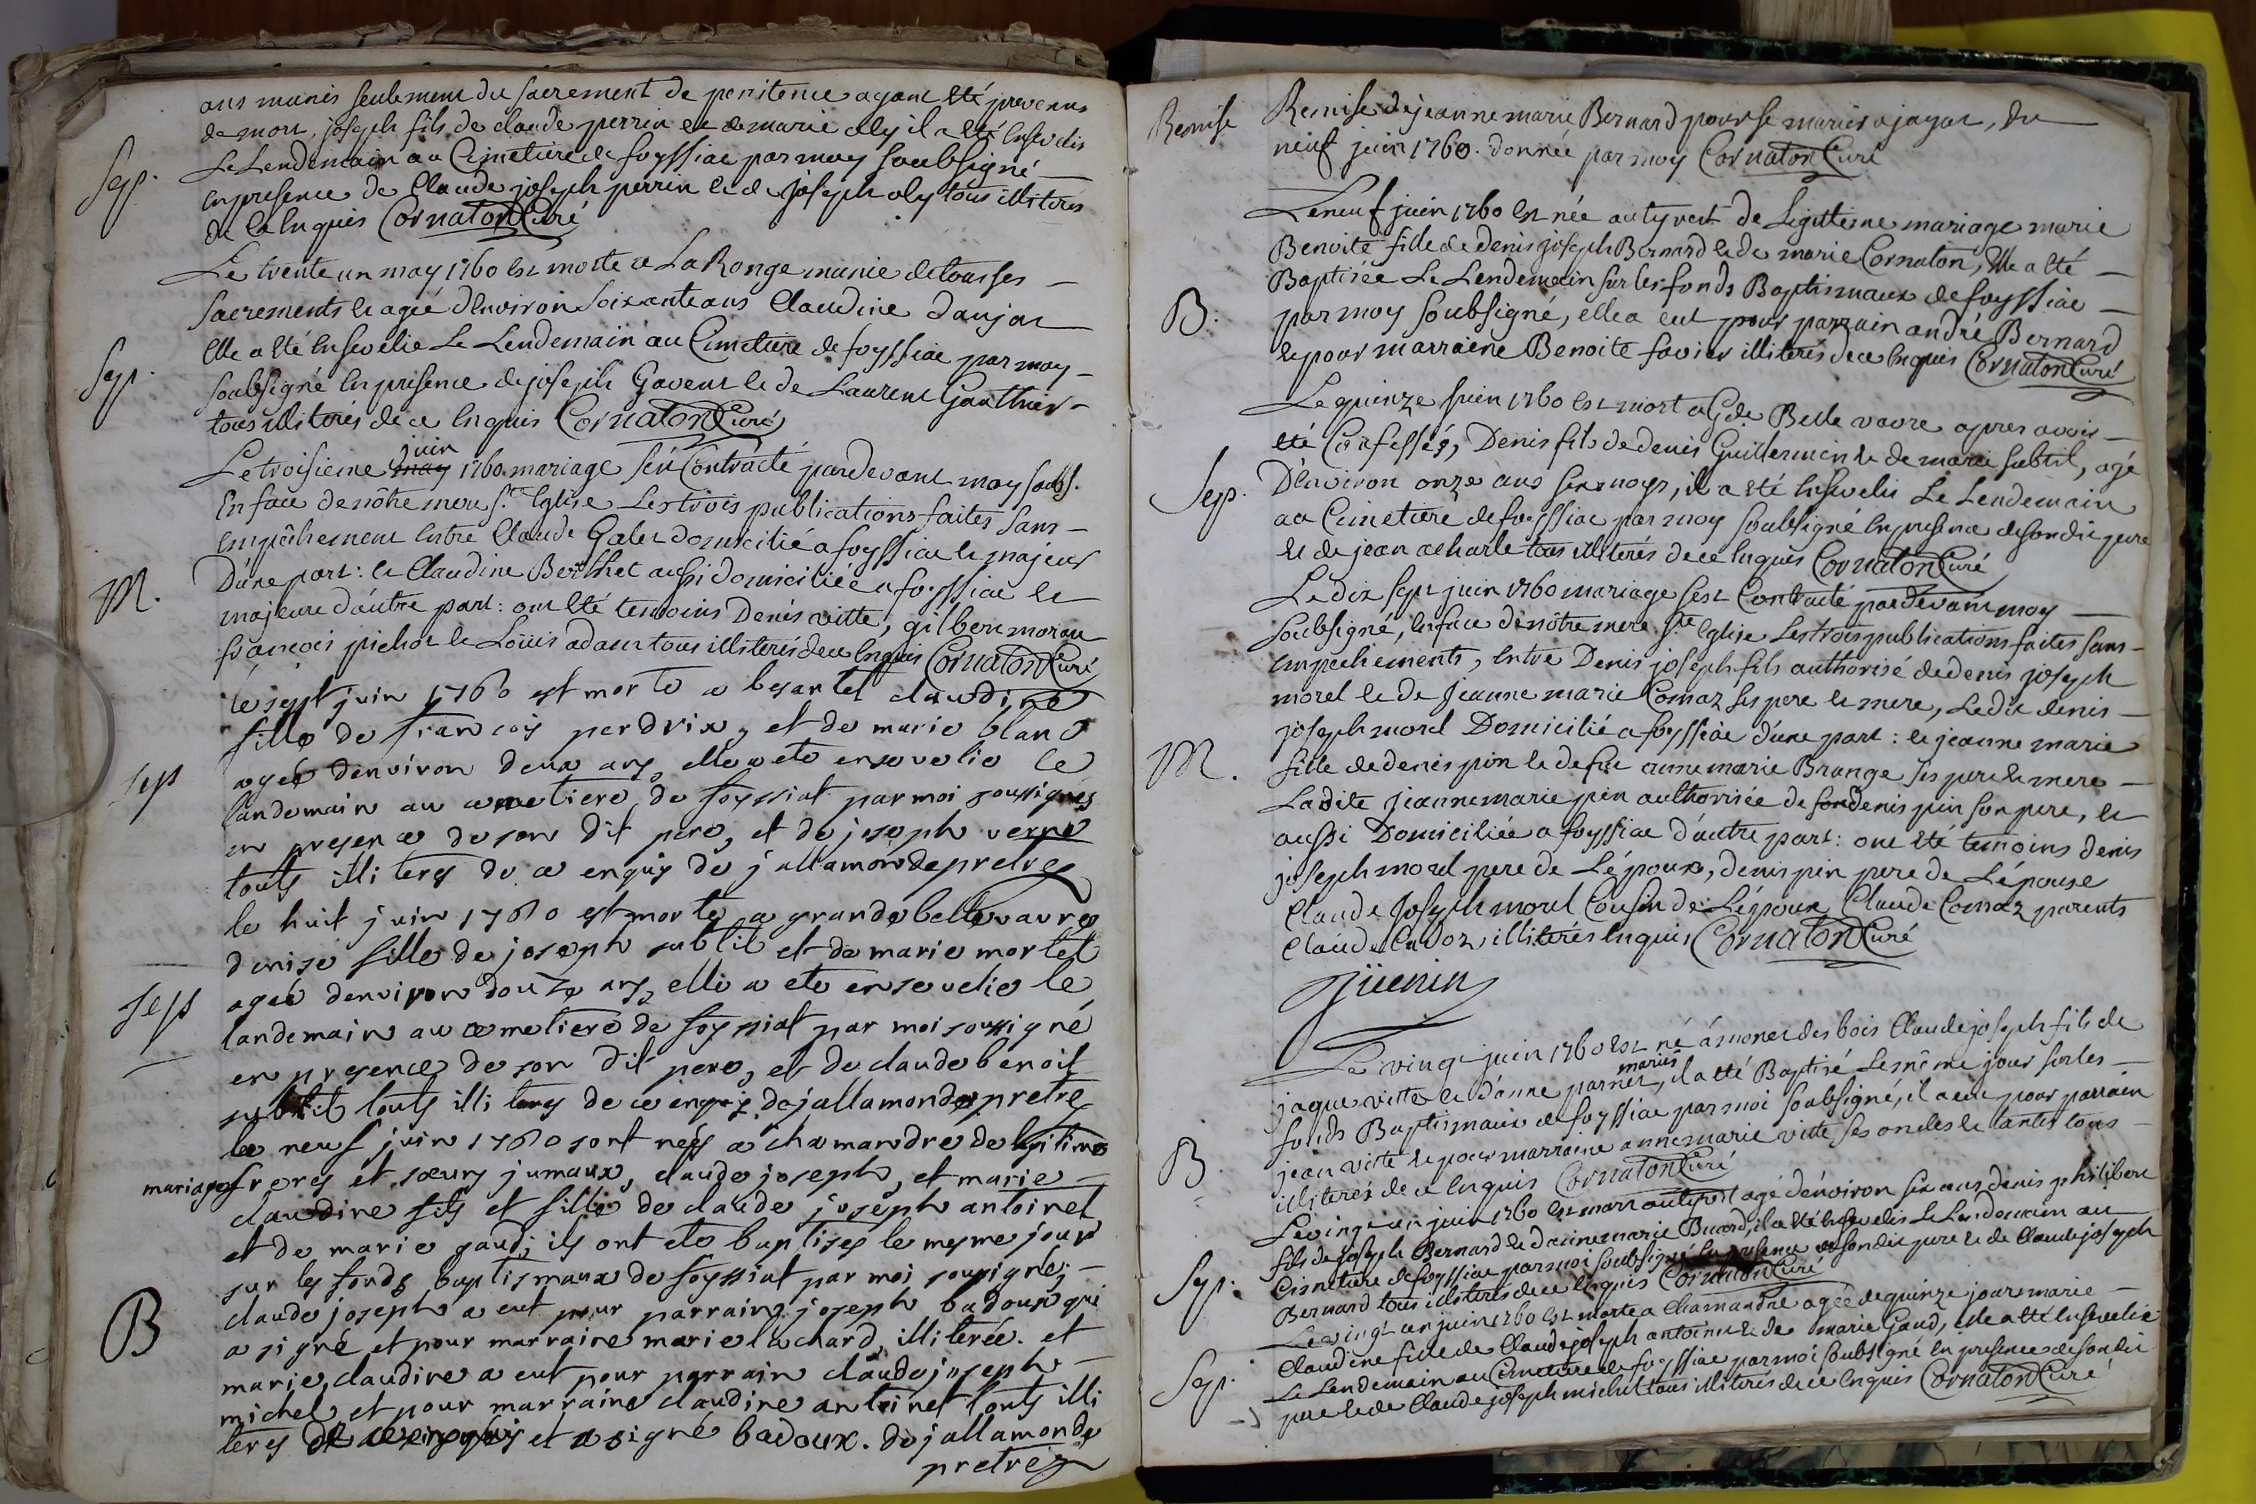 ans munis seulement du sacrement de penitence ayant eté prevenus
de mort, joseph fils de claude perrin et de marie oly il a eté Ensevelis
Sep. Le Lendemain au Cimetiere de foyssiac par moy soubsigné
en presence de Claude joseph perrin et de joseph oly tous illiterés
de ce Enquis Cornaton Curé
Le trente un may 1760 est morte a La Ronge munie de tous ses
sacrements et agée d'Environ soixante ans Claudine danjat
Sep. Elle a eté Ensevelie Le Lendemain au Cimetiere de foyssiac par moy
soubsigné En presence de joseph Gavent et de Laurent Gauthier
tous illiterés de ce Enquis Cornaton Curé
juin
Le troisieme may 1760 mariage s'est Contracté pardevant moy soubs.
En face de nôtre mere ste Eglise Les trois publications faites sans
empêchement Entre Claude Galet domicilié a foyssiac et majeur
M. D'une part: et Claudine Berthet aussi domiciliée a foyssiac et
majeure d'autre part: ont eté temoins Denis vitte, gilbert morau
françois pichot et Loüis adam tous illiterés de ce Enquis Cornaton Curé
le sept juin 1760 est morte a besantet claudine
fille de francois perdrix, et de marie blanc
Sep agée denviron deux ans, elle a ete ensevelie le
landemain au cemetiere de foyssiat par moi soussignes
en presence de son dit pere, et de joseph verne
touts illiteres de ce enquis de jallamonde pretre
le huit juin 1760 est morte a grande bellevavre
denise fille de joseph subtil et de marie mortet
Sep agée denviron douze ans, elle a ete ensevelie le
landemain au cemetiere de foyssiat par moi soussigné
en presence de son dit pere, et de claude benoit
subtil touts illiteres de ce enquis de jallamonde pretre
le neuf juin 1760 sont nés a chamandre de legitime
mariage freres et sœurs jumaux, claude joseph, et marie
claudine fils et fille de claude joseph antoinet
et de marie gaud; ils ont ete baptises le mesme jour
sur les fonds baptismaux de foyssiat par moi sousigné;
B claude joseph a eut pour parrain joseph badoux qui
a signé et pour marraine marie lochard, illiterée. et
marie claudine a eut pour parrain claude joseph
michel et pour marraine claudine antoinet touts illi
teres de ce enquis et a signé badoux. de jallamonde
pretre
Remise Remise de jeanne marie Bernard pour se marier a jayat, du
neuf juin 1760. donnée par moy Cornaton Curé
Le neuf juin 1760 est née au tyvert de Legitieme mariage marie
Benoite fille de denis joseph Bernard et de marie Cornaton, Elle a eté
Baptisée Le Lendemain sur les fonds Baptismaux de foyssiac
B. par moy soubsigné, elle a eut pour parrain andré Bernard
et pour marraine Benoite favier illiterés de ce Enquis Cornaton Curé
Le quinze juin 1760 est mort a Gde Belle vavre apres avoir
eté Confessés, Denis fils de denis Guillermin et de marie subtil, agé
Sep. D'Environ onze ans six moys, il a eté Ensevelis Le Lendemain
au Cimetiere de foyssiac par moy soubsigné En presence de son dit pere
et de jean acharle tous illiterés de ce Enquis Cornaton Curé
Le dix sept juin 1760 mariage s'est Contracté pardevant moy
soubsigné, En face de nôtre mere Ste Eglise Les trois publications faites sans
Empechements, Entre Denis joseph fils authorisé de denis joseph
morel et de jeanne marie Comaz ses pere et mere, Le dit denis
joseph morel Domicilié a foyssiac d'une part: et jeanne marie
M. fille de denis pin et de fûe anne marie Brange ses pere et mere
La dite jeanne marie pin authorisée de son denis pin son pere, et
aussi Domiciliée a foyssiac d'autre part: ont eté temoins denis
joseph morel pere de L'époux, denis pin pere de L'épouse
Claude Joseph morel Cousin de L'époux Claude Comaz parents
Claude Cadoz illiterés Enquis, Cornaton Curé
Jüenin
Le vingt juin 1760 est né á monet des bois Claude joseph fils de
mariés
jaque vitte et d'anne parnet, il a eté Baptisé Le même jour sur les
fonds Baptismaux de foyssiac par moi soubsigné, il a eut pour parrain
B jean vitte et pour marraine anne marie vitte ses oncles et tantes tous
illiterés de ce Enquis Cornaton Curé
Le vingt un juin 1760 est mort au tyvert agé d'environ six ans denis philibert
fils de joseph Bernard et d'anne marie Buard, il a eté Ensevelis Le Lendemain au
Sep. Cimetiere de foyssiac par moi soubsigné En presence de son dit pere et de Claude joseph
Bernard tous illiterés de ce Enquis Cornaton Curé
Le vingt un juin 1760 est morte a Chamandre agée de quinze jours marie
Claudine fille de Claude joseph antoinet et de marie Gaud, elle a eté Ensevelie
Sep. Le Lendemain au Cimetiere de foyssiac par moi soubsigné En presence de son dit
pere et de Claude joseph michel tous illiterés de ce Enquis Cornaton Curé